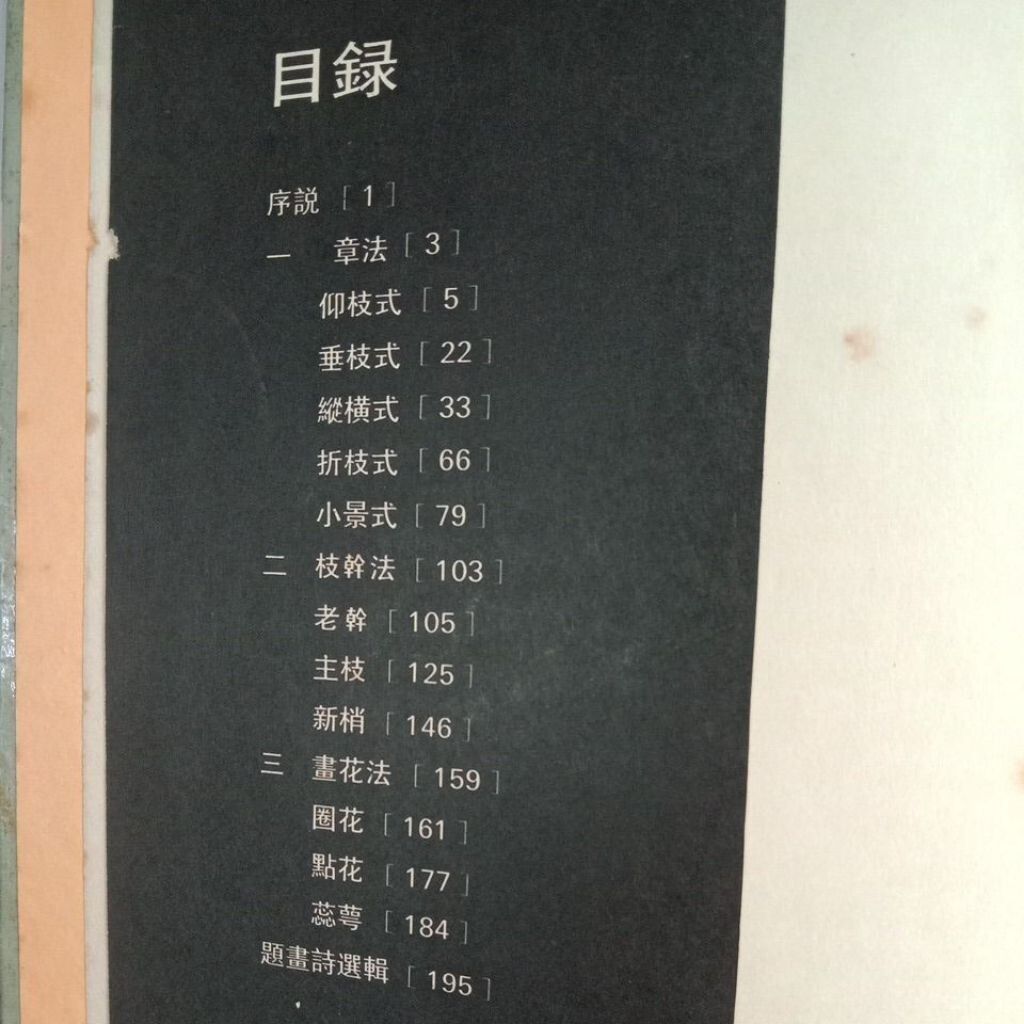 目録
序説 [ 1 ]
一 章法 [ 3 ]
仰枝式 [ 5 ]
垂枝式 [ 22 ]
縱橫式 [ 33 ]
折枝式 [ 66 ]
小景式 [ 79 ]
二 枝幹法 [ 103 ]
老幹 [ 105 ]
主枝 [ 125 ]
新梢 [ 146 ]
三 畫花法 [ 159 ]
圈花 [ 161 ]
點花 [ 177 ]
蕊萼 [ 184 ]
題畫詩選輯 [ 195 ]